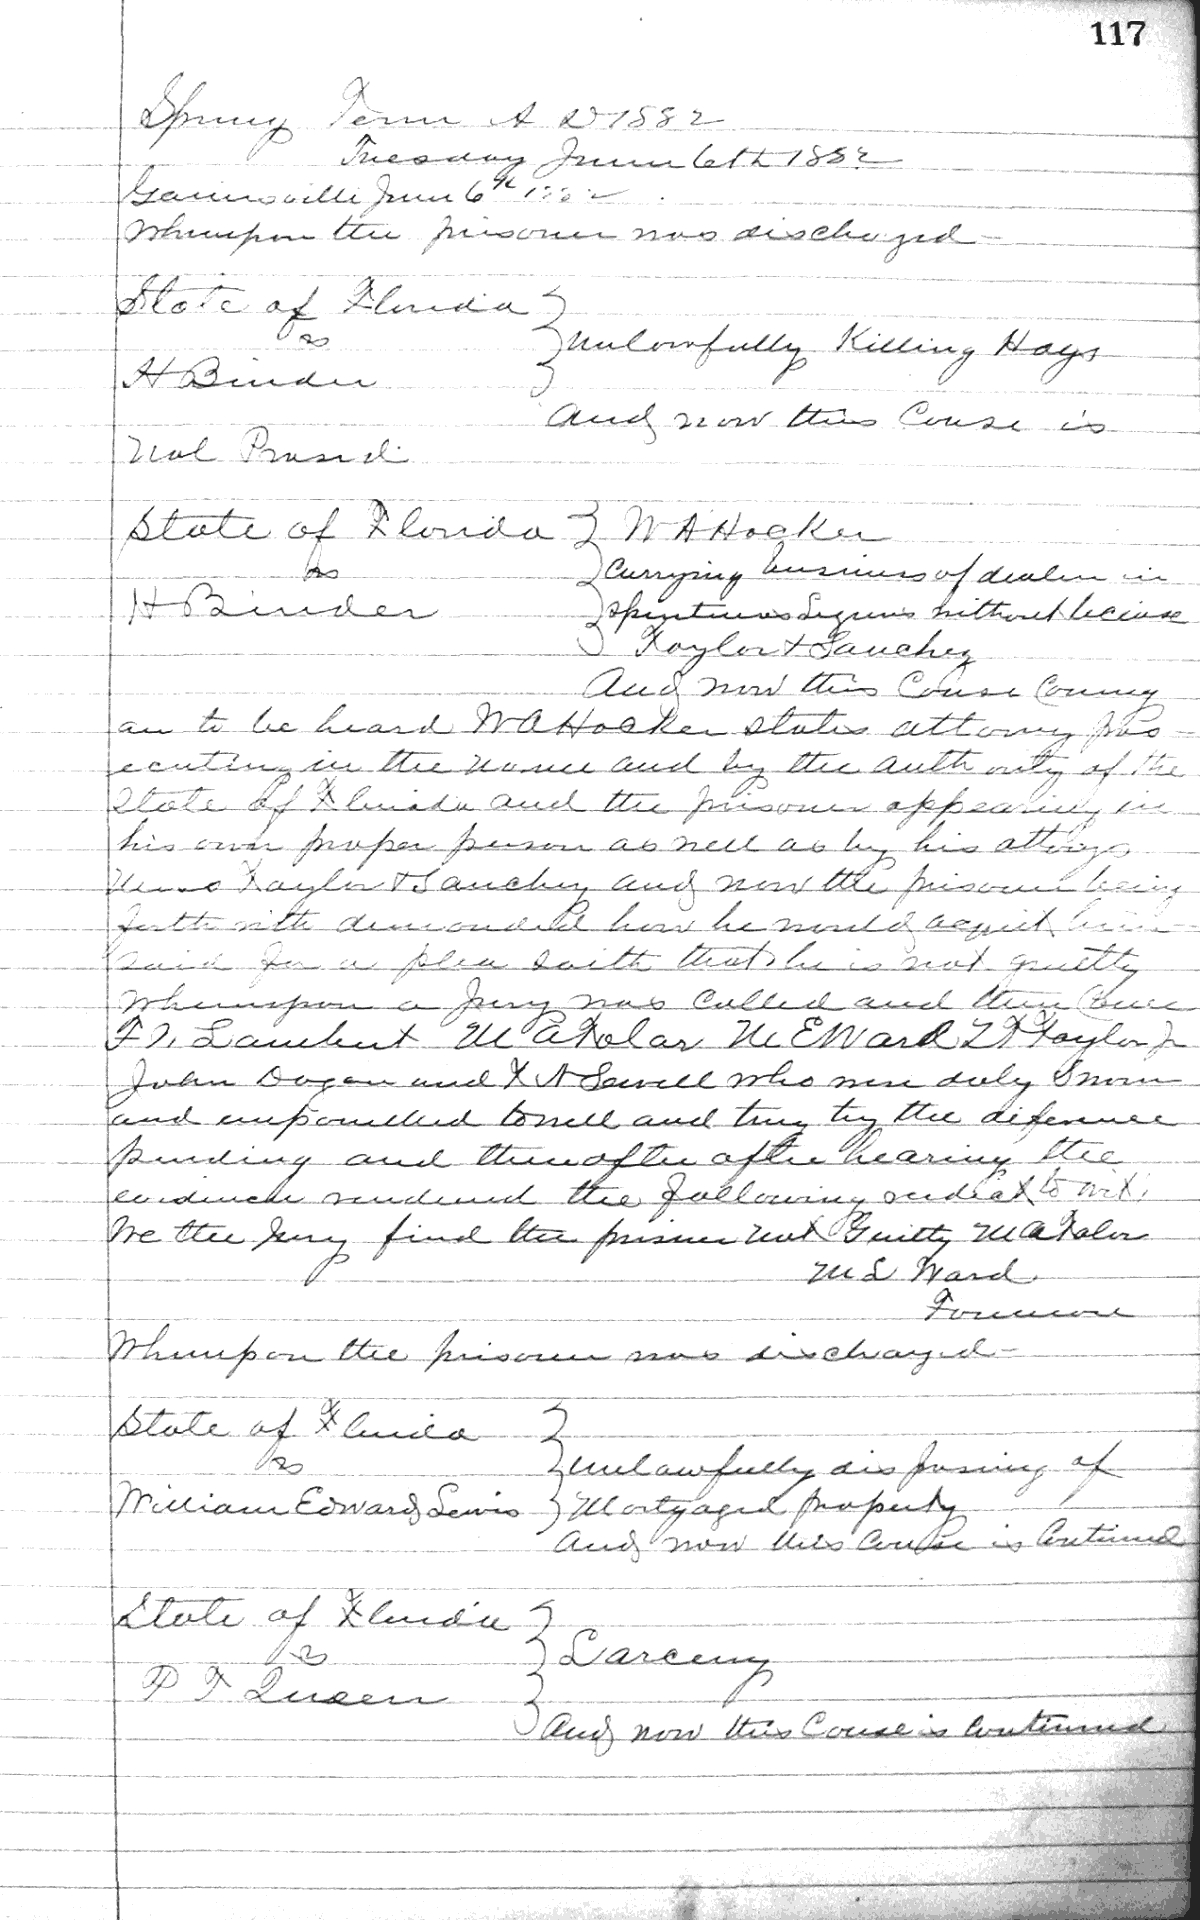 117
Spring Term A D 1882
Tuesday June 6th 1882
Gainesville June 6th 1882
Whereupon the prisoner was discharged
State of Florida
vs
Unlawfully Killing Hogs
H Binder
And now this Cause is
Nol Prosed
State of Florida W A Hocker
vs Carrying business of dealer in
H Binder Spirituous Liquors without license
Taylor & Sanchez
And now this Cause Coming
on to be heard W A Hocker States attorney pros
ecuting in the name and by the authority of the
State of Florida and the prisoner appearing in
his own proper person as well as by his attorneys
Messrs Taylor & Sanchez and now the prisoner being
forthwith demanded how he would acquit him
said for a plea saith that he is not guilty
Whereupon a Jury was Called and then Came
F N Lambert M A Tolar M E Ward L F Taylor Jr
John Dogan and F A Sewell who were duly Sworn
and empanelled to well and truly try the
pending and thereafter after hearing the
evidence rendered the following verdict to wit,
We the Jury find the prisoner not Guilty M A Tolar
M L Ward
Foreman
Whereupon the prisoner was discharged
State of Florida
vs Unlawfully disposing of
William Edward Lewis Mortgaged property
And now this Cause is Continued
State of Florida
vs Larceny
P F Queen
And now this Cause is Continued